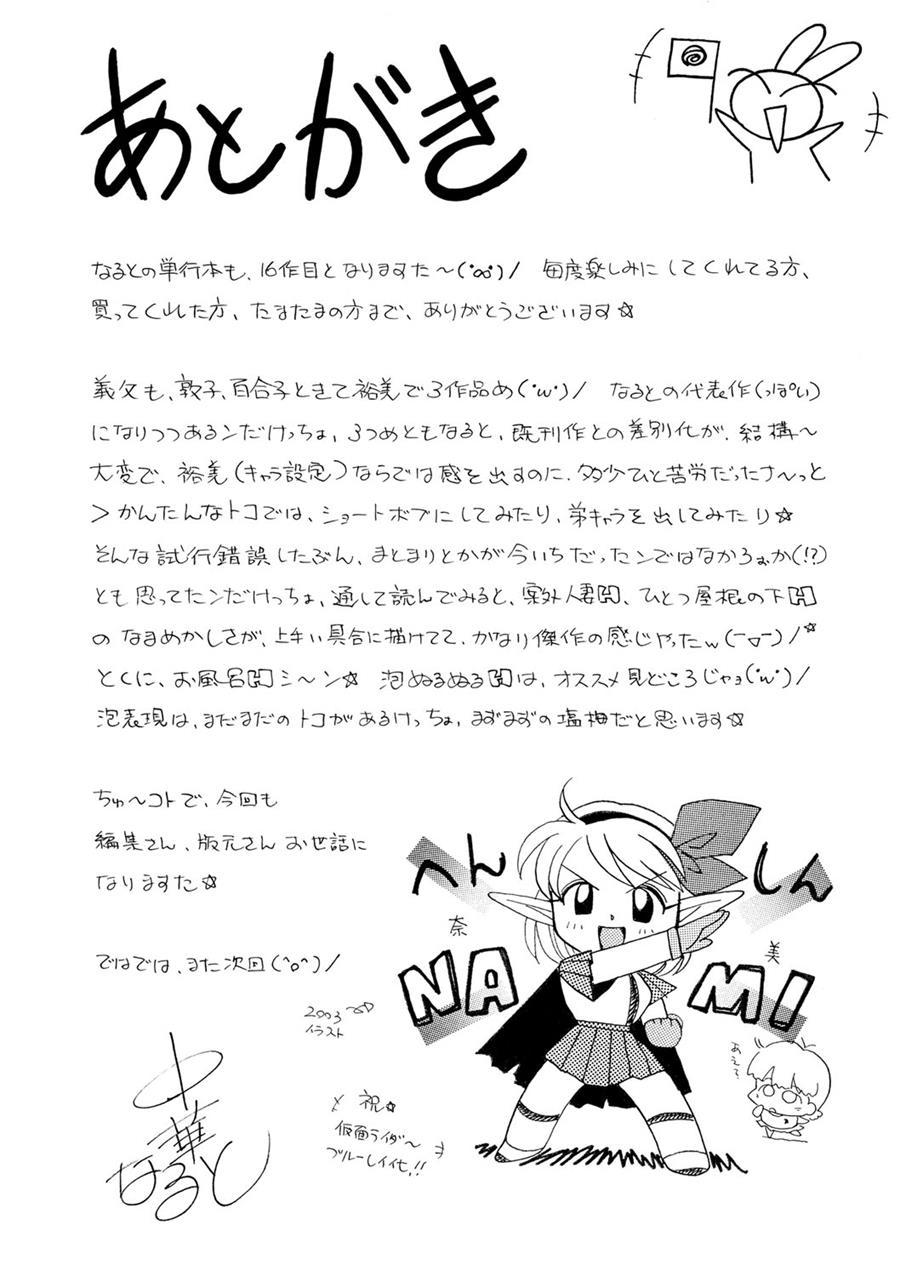 あとがき
なるとの単行本も、16作目となりますた〜(°∞°)/ 毎度楽しみにしてくれてる方、
買ってくれた方、たまたまの方まで、ありがとうございます☆
義父も、敦子、百合子ときて裕美で3作品め(°w°)/ なるとの代表作(っぽい)
になりつつあるンだけっちょ、3つめともなると、既刊作との差別化が、結構〜
大変で、裕美(キャラ設定)ならでは感を出すのに、多少ひと苦労だったナ〜っと
>かんたんなトコでは、ショートボブにしてみたり、弟キャラを出してみたり☆
そんな試行錯誤したぶん、まとまりとかが今いちだったンではなかろぉか(!?)
とも思ってたンだけっちょ、通して読んでみると、案外人妻H、ひとつ屋根の下H
の なまめかしさが、上手い具合に描けてて、かなり傑作の感じやったw(ー▽ー)/☆
とくに、お風呂Hシ〜ン☆ 泡ぬるぬるHは、オススメ見どころじゃョ(°w°)/
泡表現は、まだまだのトコがあるけっちょ、まずまずの塩梅だと思います☆
ちゅ〜コトで、今回も
編集さん、版元さん お世話に
なりますた☆
ではでは、また次回(^o^)/
へん しん
奈 美
NA MI
2003
イラスト
あえろ
と 祝☆
仮面ライダ〜
ブルーレイ化!!
中華
なると